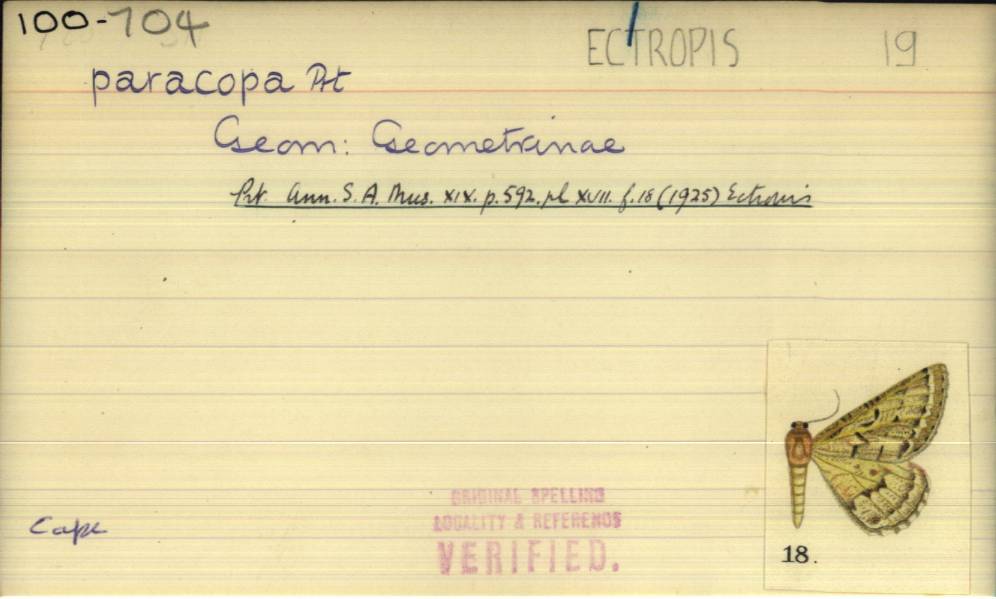 100-704
ECTROPIS 19
paracopa Prt
Geom: Geometrinae
Prt. Ann. S. A. Mus. XIX. p.592. pl XVII. f.18 (1925) Ectropis
ORIGINAL SPELLING
LOCALITY & REFERENCE
VERIFIED.
Cape
18.